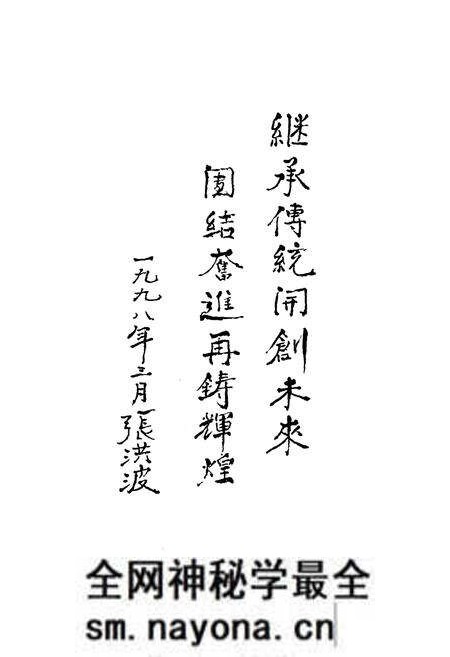 継承傳統開創未來
團結奮進再鑄輝煌
一九九八年三月張洪波
全网神秘学最全
sm.nayona.cn